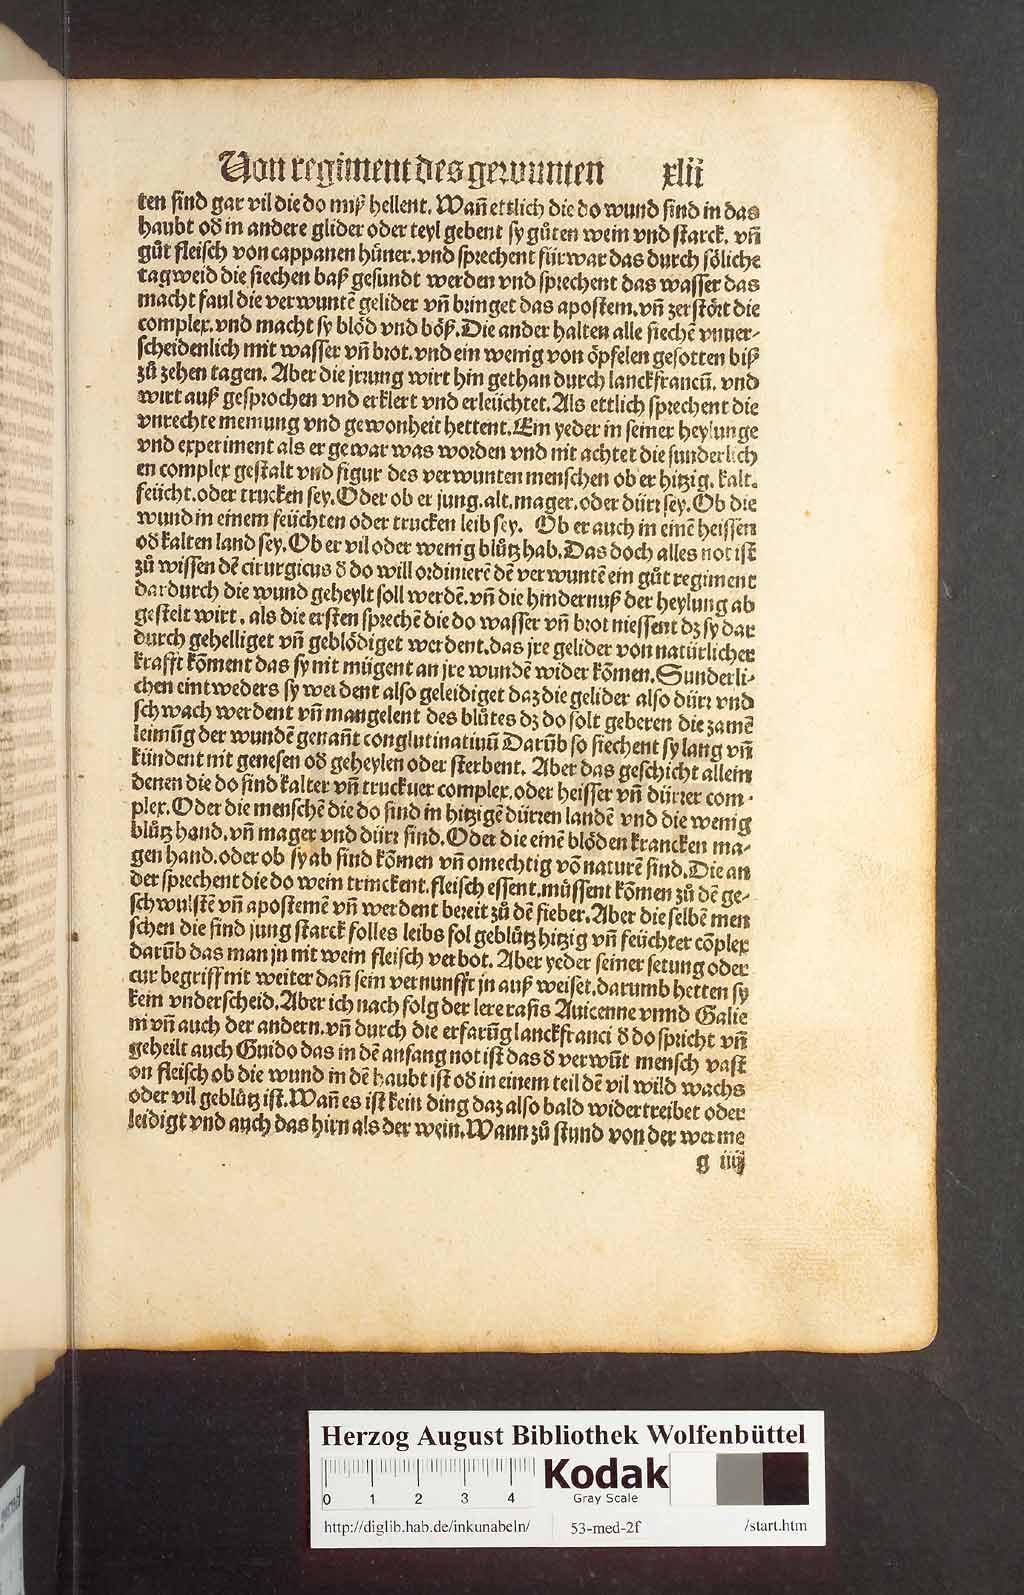 Von regiment des gewunten xlii
ten sind gar vil die do miß hellent. Wañ ettlich die do wund sind in das
haubt od in andere glider oder teyl gebent sy gůten wein vnd starck. vñ
gůt fleisch von cappanen hüner. vnd sprechent fürwar das durch söliche
tagweid die siechen baß gesundt werden vnd sprechent das wasser das
macht faul die verwuntē gelider vñ bringet das apostem. vñ zerstört die
complex. vnd macht sy blöd vnd böß. Die ander halten alle siechē vnuer-
scheidenlich mit wasser vñ brot. vnd ein wenig von öpfelen gesotten biß
zů zehen tagen. Aber die jrrung wirt hin gethan durch lanckfrancū. vnd
wirt auß gesprochen vnd erklert vnd erleüchtet. Als ettlich sprechent die
vnrechte meinung vnd gewonheit hettent. Ein yeder in seiner heylunge
vnd experiment als er gewar was worden vnd nit achtet die sunderlich
en complex gestalt vnd figur des verwunten menschen ob er hitzig. kalt.
feücht. oder trucken sey. Oder ob er jung. alt. mager. oder dürr sey. Ob die
wund in einem feüchten oder trucken leib sey. Ob er auch in einē heissen
od kalten land sey. Ob er vil oder wenig blůtz hab. Das doch alles not ist
zů wissen dē cirurgicus d do will ordinierē dē verwuntē ein gůt regiment
dardurch die wund geheylt soll werdē. vñ die hindernuß der heylung ab
gestelt wirt. als die ersten sprechē die do wasser vñ brot niessent dz sy dar
durch gehelliget vñ geblödiget werdent. das jre gelider von natürlicher
krafft kōment das sy nit mügent an jre wundē wider kōmen. Sunderli-
chen eintweders sy werdent also geleidiget daz die gelider also dürr vnd
schwach werdent vñ mangelent des blůtes dz do solt geberen die zamē
leimūg der wundē genañt conglutinatiuū Darūb so siechent sy lang vñ
kündent nit genesen od geheylen oder sterbent. Aber das geschicht allein
denen die do sind kalter vñ truckner complex. oder heisser vñ dürrer com-
plex. Oder die menschē die do sind in hitzigē dürren landē vnd die wenig
blůtz hand. vñ mager vnd dürr sind. Oder die einē blöden krancken ma-
gen hand. oder ob sy ab sind kōmen vñ omechtig vō naturē sind. Die an
der sprechent die do wein trinckent. fleisch essent. můssent kōmen zů dē ge-
schwulstē vñ apostemē vñ werdent bereit zů dē fieber. Aber die selbē men
schen die sind jung starck folles leibs fol geblůtz hitzig vñ feüchter cōplex
darūb das man jn mit wein fleisch verbot. Aber yeder seiner setung oder
cur begriff nit weiter dañ sein vernunfft jn auß weiset. darumb hetten sy
kein vnderscheid. Aber ich nach folg der lere rasis Auicenne vnnd Galie
ni vñ auch der andern. vñ durch die erfarūg lanckfranci d do spricht vñ
geheilt auch Guido das in dē anfang not ist das d verwūt mensch vast
on fleisch ob die wund in dē haubt ist od in einem teil dē vil wild wachs
oder vil geblůtz ist. Wañ es ist kein ding daz also bald widertreibet oder
leidigt vnd auch das hirn als der wein. Wann zů stund von der werme
g iiij
Herzog August Bibliothek Wolfenbüttel
0 1 2 3 4
Kodak
Gray Scale
http://diglib.hab.de/inkunabeln/ 53-med-2f /start.htm